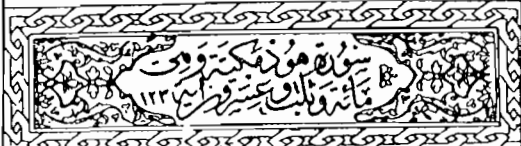 سُورَةُ هُودٍ مَكِّيَّةٌ وَهِيَ
مِائَةٌ وَثَلَاثٌ وَعِشْرُونَ آيَةً ١٢٣